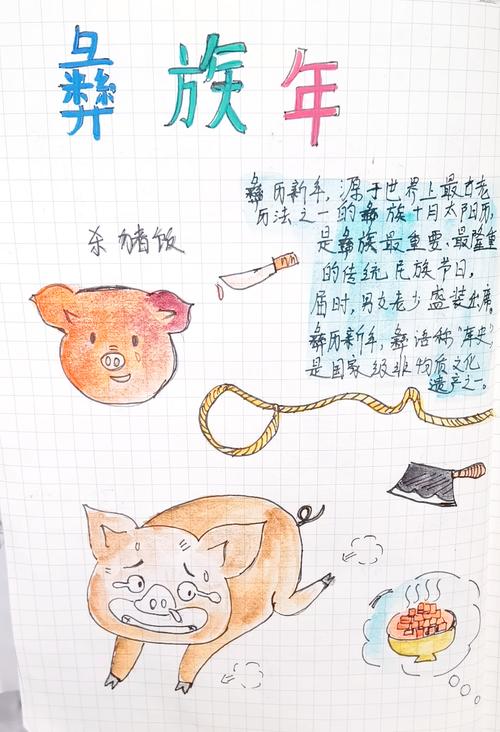 彝族年
彝历新年，源于世界上最古老
历法之一的彝族十月太阳历，
是彝族最重要、最隆重
的传统民族节日，
届时，男女老少盛装出席。
彝历新年，彝语称“库史”，
是国家级非物质文化
遗产之一。
杀猪饭